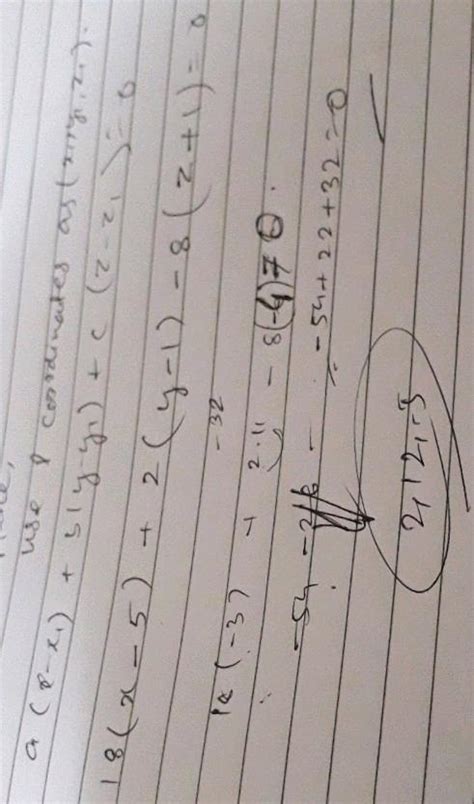 use P coordinates as (x₁, y₁, z₁).
a (x-x₁) + b(y-y₁) + c (z-z₁) = 0
18(x-5) + 2(y-1) - 8(z+1) = 0
-32
18(-3) + 2.11 - 8(-4) = 0.
-54
= -54+22+32=0
2,12,-5